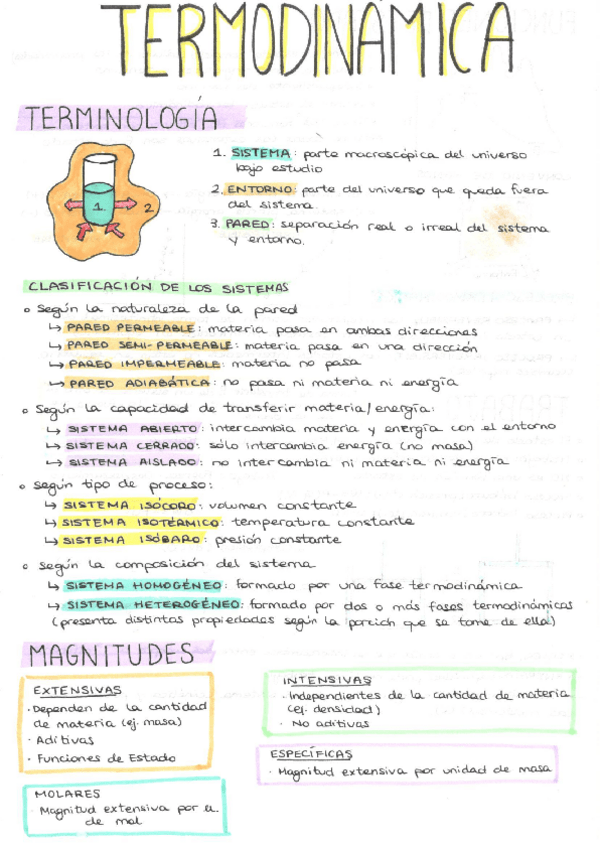 TERMODINÁMICA
TERMINOLOGÍA
1.
2
1. SISTEMA: parte macroscópica del universo
bajo estudio
2. ENTORNO: parte del universo que queda fuera
del sistema.
3. PARED: separación real o irreal del sistema
y entorno.
CLASIFICACIÓN DE LOS SISTEMAS
o Según la naturaleza de la pared
↳ PARED PERMEABLE: materia pasa en ambas direcciones
↳ PARED SEMI-PERMEABLE: materia pasa en una dirección
↳ PARED IMPERMEABLE: materia no pasa
↳ PARED ADIABÁTICA: no pasa ni materia ni energía
o Según la capacidad de transferir materia/energía:
↳ SISTEMA ABIERTO: intercambia materia y energía con el entorno
↳ SISTEMA CERRADO: sólo intercambia energía (no masa)
↳ SISTEMA AISLADO: no intercambia ni materia ni energía
o Según tipo de proceso:
↳ SISTEMA ISÓCORO: volumen constante
↳ SISTEMA ISOTÉRMICO: temperatura constante
↳ SISTEMA ISÓBARO: presión constante
o Según la composición del sistema
↳ SISTEMA HOMOGÉNEO: formado por una fase termodinámica
↳ SISTEMA HETEROGÉNEO: formado por dos o más fases termodinámicas
(presenta distintas propiedades según la porción que se tome de ella)
MAGNITUDES
EXTENSIVAS
· Dependen de la cantidad
de materia (ej. masa)
· Aditivas
· Funciones de Estado
INTENSIVAS
· Independientes de la cantidad de materia
(ej. densidad)
· No aditivas
ESPECÍFICAS
· Magnitud extensiva por unidad de masa
MOLARES
· Magnitud extensiva por u.
de mol